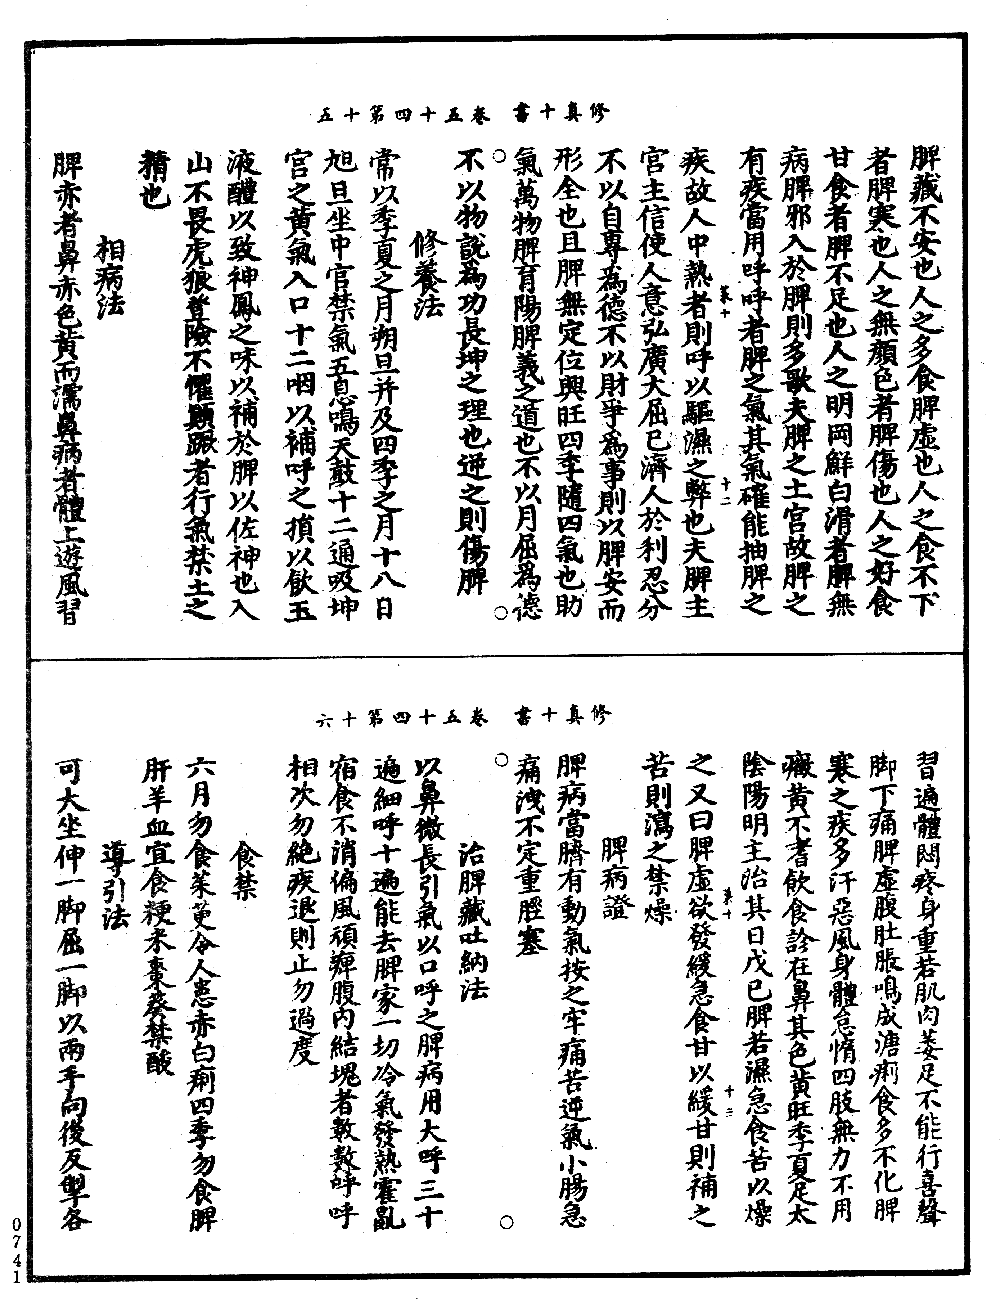 修真十書　卷五十四第十五
脾藏不安也人之多食脾虛也人之食不下
者脾寒也人之無顏色者脾傷也人之好食
甘食者脾不足也人之明岡鮮白滑者脾無
病脾邪入於脾則多歌夫脾之土宮故脾之
有疾當用呼呼者脾之氣其氣確能抽脾之
疾故人中熱者則呼以驅濕之弊也夫脾主
宮主信使人意弘廣大屈已濟人於利忍分
不以自專為德不以財爭為事則以脾安而
形全也且脾無定位興旺四季隨四氣也助
氣萬物脾育陽脾義之道也不以月屈為德
不以物說為功長坤之理也逆之則傷脾
修養法
常以季夏之月朔旦并及四季之月十八日
旭旦坐中官禁氣五息鳴天鼓十二通吸坤
宮之黃氣入口十二咽以補呼之損以飲玉
液醴以致神鳳之味以補於脾以佐神也入
山不畏虎狼登險不懼顛蹶者行氣禁土之
精也
相病法
脾亦者鼻亦色黃而濡鼻病者體上遊風習
修真十書　卷五十四第十六
習遍體悶疼身重若肌肉萎足不能行喜聲
脚下痛脾虛腹肚脹鳴成溏痢食多不化脾
寒之疾多汗惡風身體怠惰四肢無力不用
瘢黃不耆飲食診在鼻其色黃旺季夏足太
陰陽明主治其日戊巳脾若濕急食苦以燥
之又曰脾虛欲發緩急食甘以緩甘則補之
苦則瀉之禁燥
脾病證
脾病當臍有動氣按之牢痛苦逆氣小腸急
痛洩不定重脛塞
治脾藏吐納法
以鼻微長引氣以口呼之脾病用大呼三十
遍細呼十遍能去脾家一切冷氣發熱霍亂
宿食不消偏風頑痺腹內結塊者敷數呼呼
相次勿絕疾退則止勿過度
食禁
六月勿食茱萸令人患赤白痢四季勿食脾
肝羊血宜食粳米棗葵禁酸
導引法
可大坐伸一脚屈一脚以兩手向後反掣各
0741